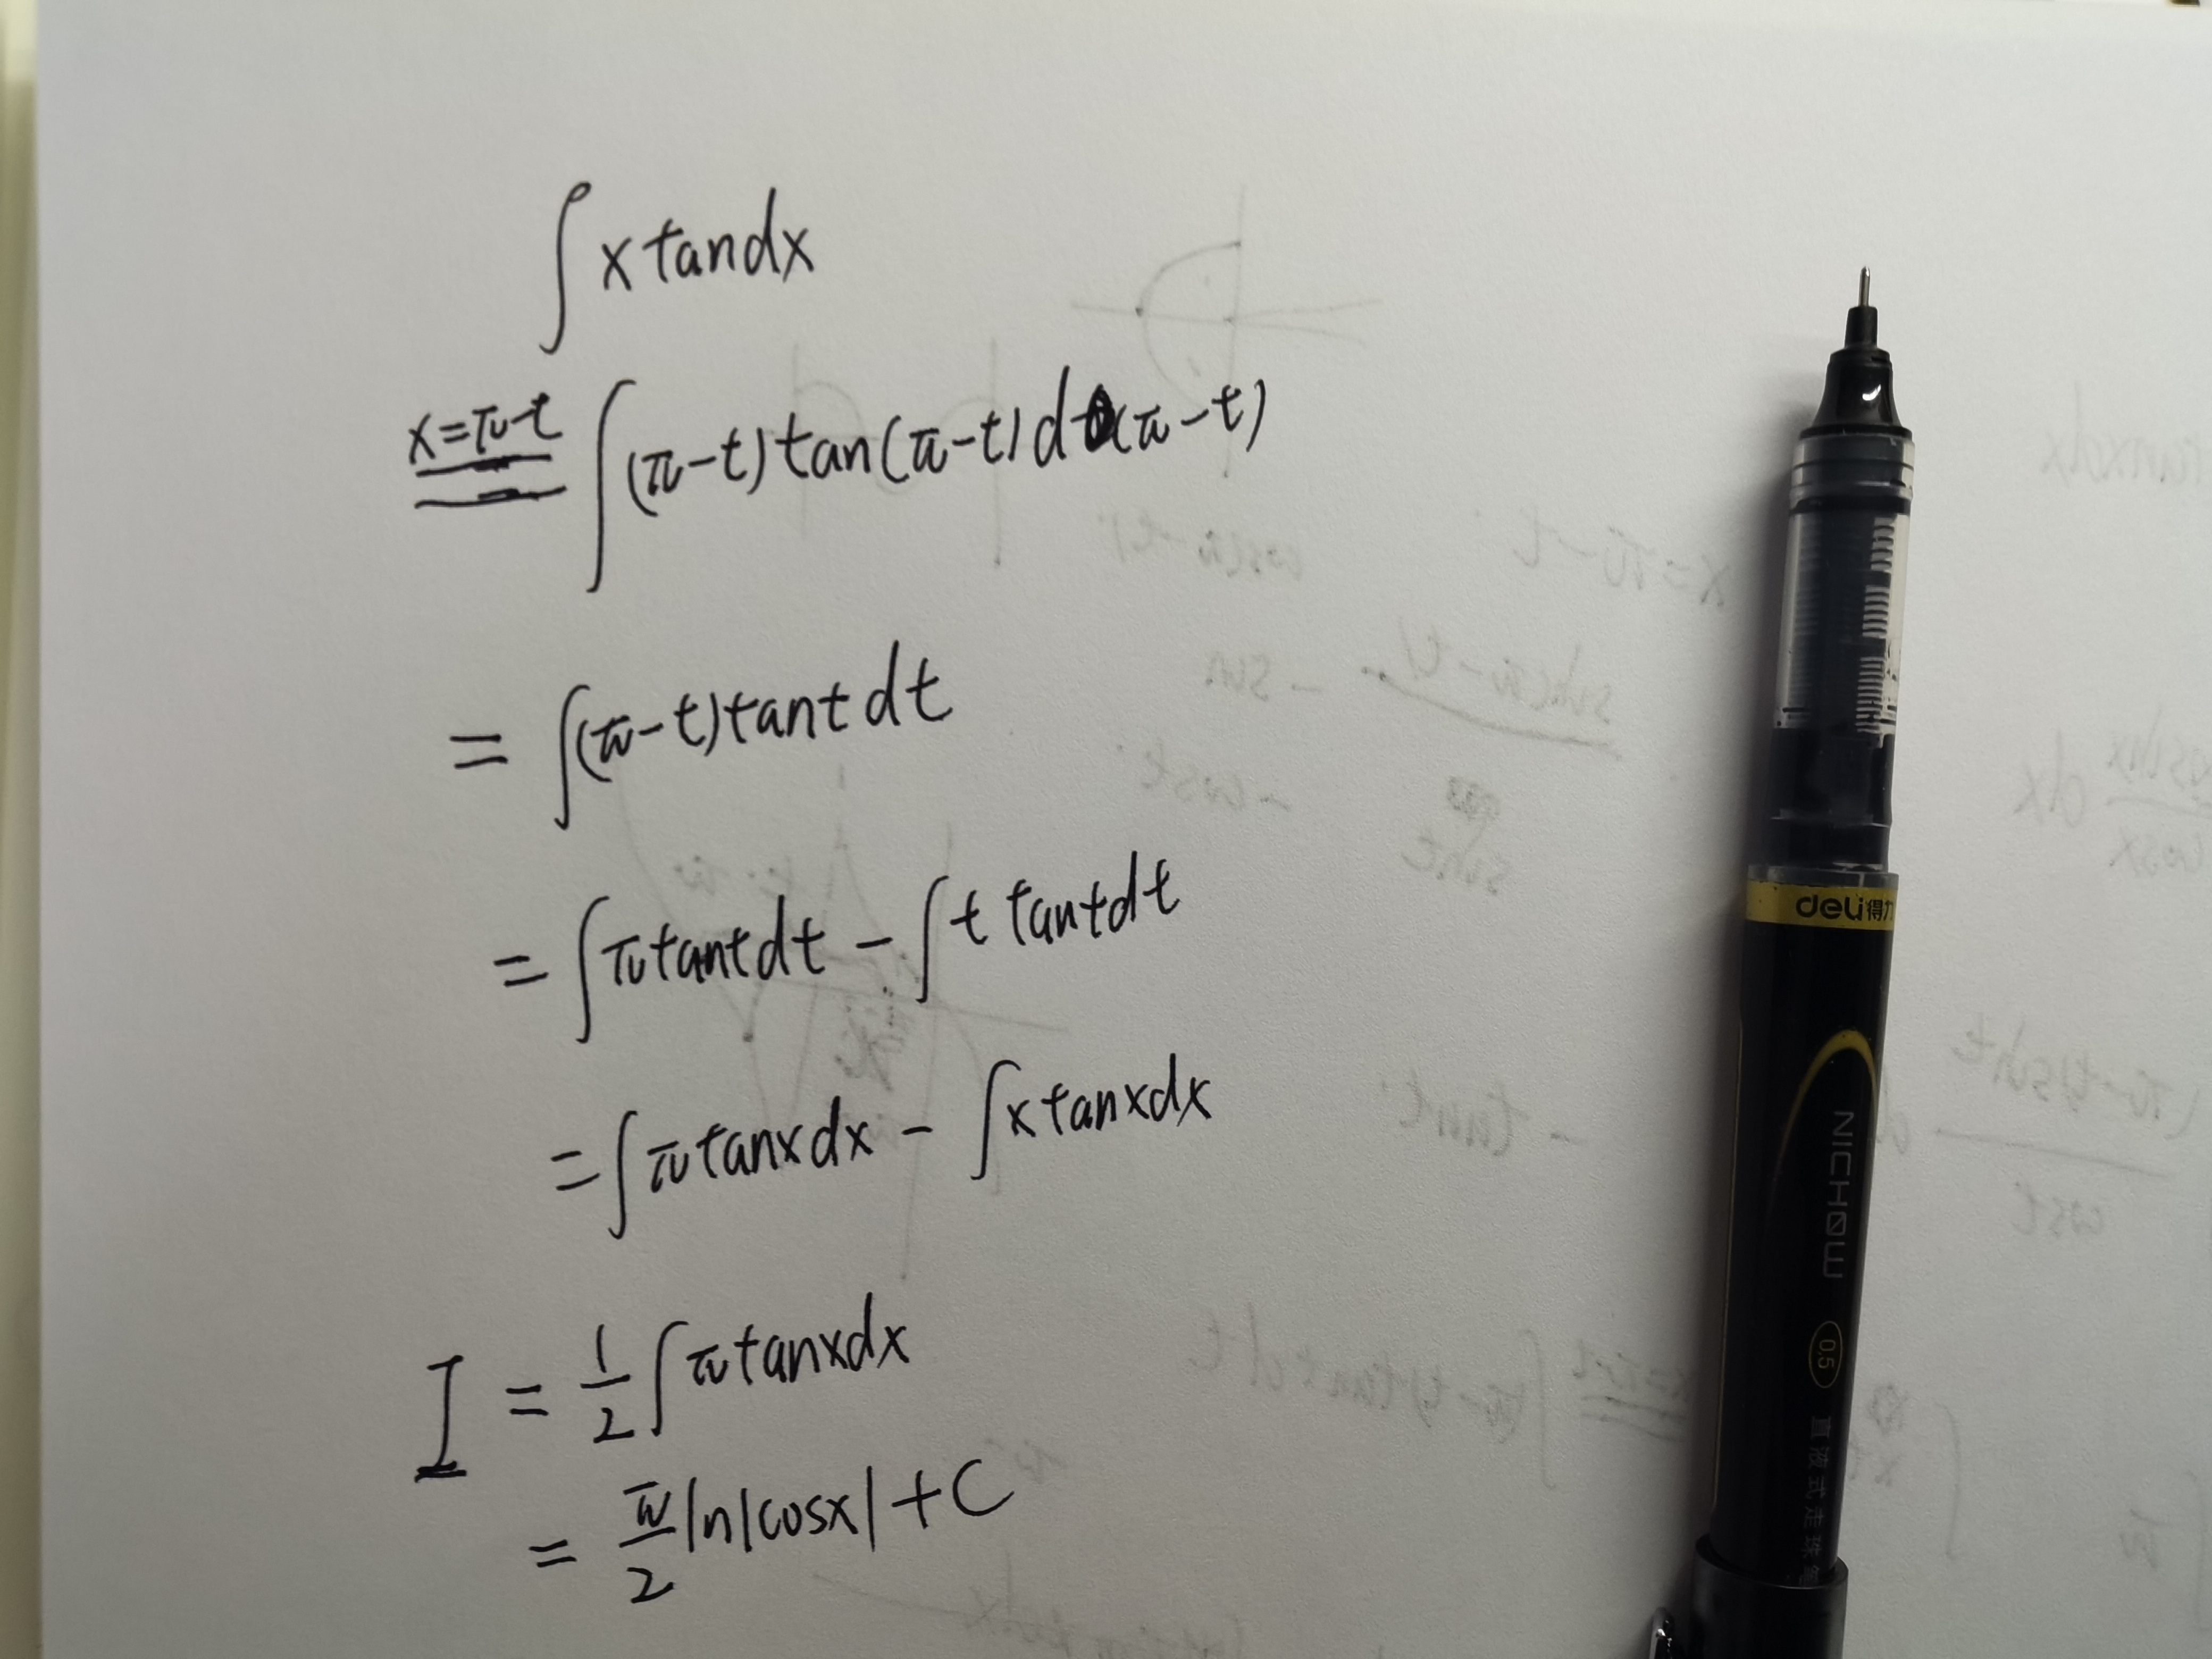 ∫ x tandx
x=π-t ∫ (π-t) tan(π-t) d (π-t)
= ∫(π-t)tant dt
= ∫πtantdt - ∫t tantdt
= ∫πtanxdx - ∫x tanxdx
I = 1/2 ∫πtanxdx
= π/2 ln|cosx| + C
deli得力
NICHOW
0.5
直液式走珠笔